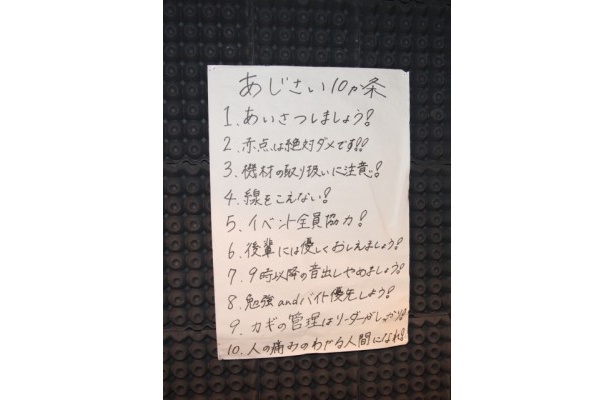 あじさい10カ条
1. あいさつしましょう!
2. 赤点は絶対ダメです!!
3. 機材の取り扱いに注意!!
4. 線をこえない!
5. イベント全員協力!
6. 後輩には優しくおしえましょう!
7. 9時以降の音出しやめましょう!
8. 勉強andバイト優先しよう!
9. カギの管理はリーダーがしっかり!
10. 人の痛みのわかる人間になれ!